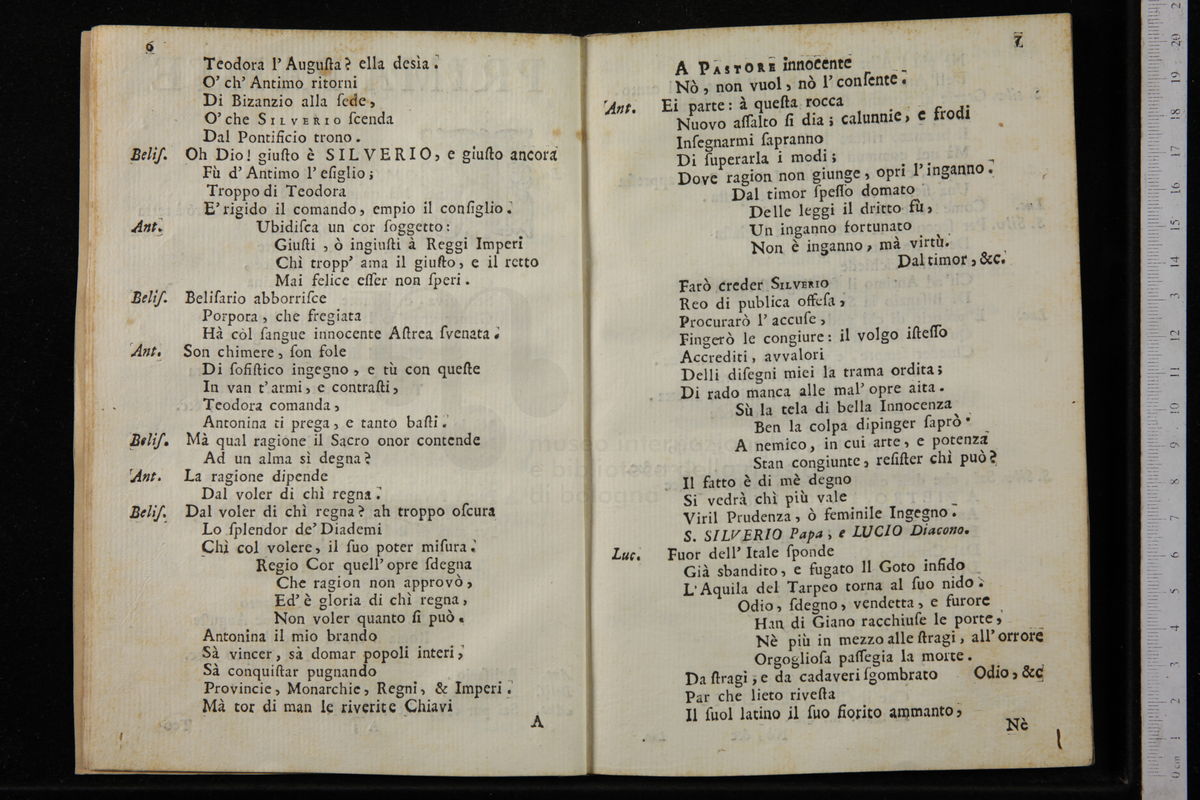 6
Teodora l'Auguſta? ella desìa.
O' ch' Antimo ritorni
Di Bizanzio alla ſede,
O' che SILVERIO ſcenda
Dal Pontificio trono.
Beliſ. Oh Dio! giuſto è SILVERIO, e giuſto ancora
Fù d' Antimo l' eſiglio;
Troppo di Teodora
E' rigido il comando, empio il conſiglio.
Ant. Ubidiſca un cor ſoggetto:
Giuſti, ò ingiuſti à Reggi Imperi
Chì tropp' ama il giuſto, e il retto
Mai felice eſſer non ſperi.
Beliſ. Beliſario abborriſce
Porpora, che fregiata
Hà còl ſangue innocente Aſtrea ſvenata.
Ant. Son chimere, ſon fole
Di ſofiſtico ingegno, e tù con queſte
In van t'armi, e contraſti,
Teodora comanda,
Antonina ti prega, e tanto baſti.
Beliſ. Mà qual ragione il Sacro onor contende
Ad un alma sì degna?
Ant. La ragione dipende
Dal voler di chì regna.
Beliſ. Dal voler di chì regna? ah troppo oſcura
Lo ſplendor de' Diademi
Chì col volere, il ſuo poter miſura.
Regio Cor quell' opre ſdegna
Che ragion non approvò,
Ed' è gloria di chì regna,
Non voler quanto ſi può.
Antonina il mio brando
Sà vincer, sà domar popoli interi,
Sà conquiſtar pugnando
Provincie, Monarchie, Regni, & Imperi.
Mà tor di man le riverite Chiavi
A
7
A PASTORE innocente
Nò, non vuol, nò l' conſente.
Ant. Ei parte: à queſta rocca
Nuovo aſſalto ſi dia; calunnie, e frodi
Inſegnarmi ſapranno
Di ſuperarla i modi;
Dove ragion non giunge, opri l'inganno.
Dal timor ſpeſſo domato
Delle leggi il dritto fù,
Un inganno fortunato
Non è inganno, mà virtù.
Dal timor, &c.
Farò creder SILVERIO
Reo di publica offeſa,
Procurarò l' accuſe,
Fingerò le congiure: il volgo iſteſſo
Accrediti, avvalori
Delli diſegni miei la trama ordita;
Di rado manca alle mal' opre aita.
Sù la tela di bella Innocenza
Ben la colpa dipinger ſaprò.
A nemico, in cui arte, e potenza
Stan congiunte, reſiſter chì può?
Il fatto è di mè degno
Si vedrà chì più vale
Viril Prudenza, ò feminile Ingegno.
S. SILVERIO Papa, e LUCIO Diacono.
Luc. Fuor dell' Itale ſponde
Già sbandito, e fugato Il Goto infido
L'Aquila del Tarpeo torna al ſuo nido.
Odio, ſdegno, vendetta, e furore
Han di Giano racchiuſe le porte,
Nè più in mezzo alle ſtragi, all' orrore
Orgoglioſa paſſegia la morte.
Da ſtragi, e da cadaveri ſgombrato Odio, &c
Par che lieto riveſta
Il ſuol latino il ſuo fiorito ammanto,
Nè
museo internazionale
e biblioteca della
di bologna